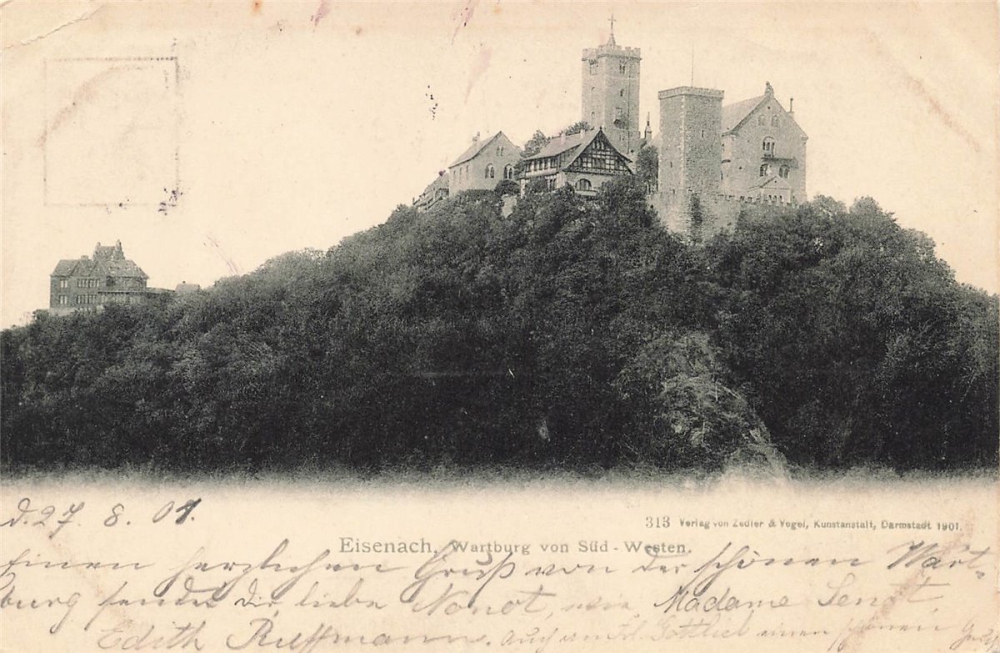 d. 27. 8. 01.
313 Verlag von Zedler & Vogel, Kunstanstalt, Darmstadt 1901.
Eisenach. Wartburg von Süd-Westen.
Einen herzlichen Gruß von der schönen Wart-
burg sendet Dir, liebe Nonot, wie Madame Senot,
Edith Ruffmann. Auch von Frl. Gottlich einen schönen Gruß